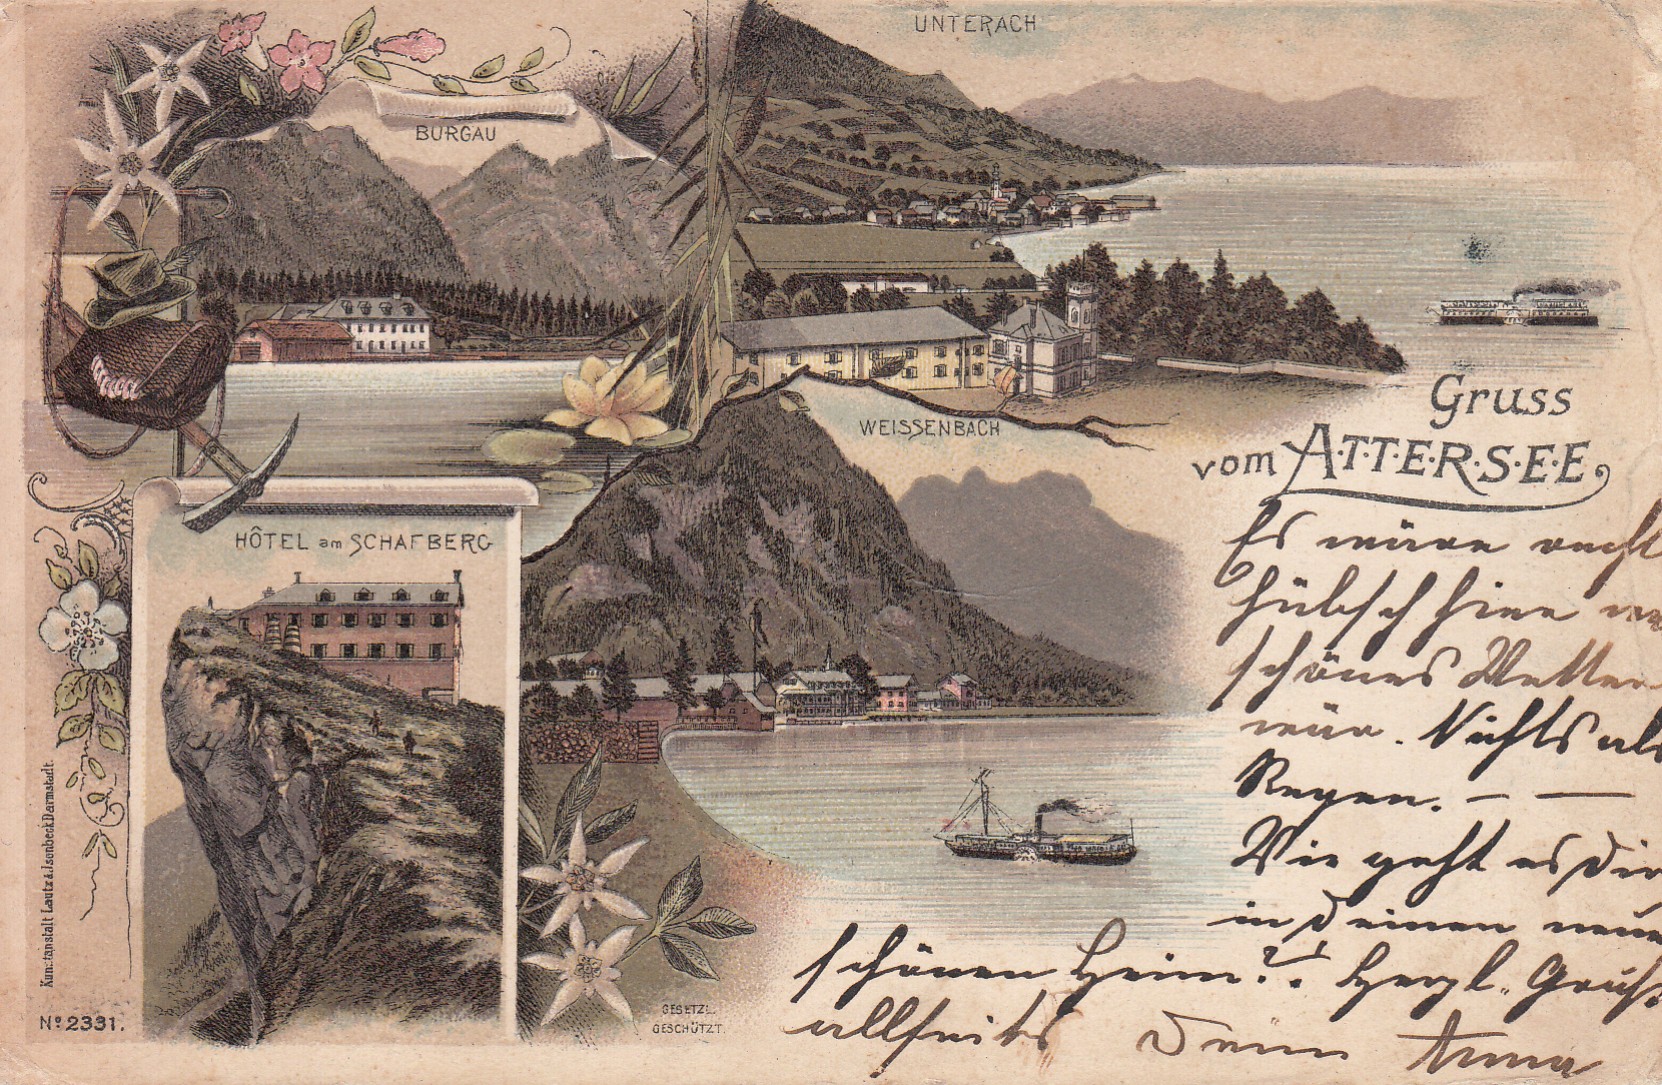 UNTERACH
BURGAU
Gruss
vom ATTERSEE
WEISSENBACH
HÔTEL am SCHAFBERG
Es wäre recht
hübsch hier we
schönes Wetter
wär. Nichts als
Regen. — —
Wie geht es Dir
in Deinem neue
schönen Heim?. Herzl. Grüße
allseits Deine Anna
Kunstanstalt Lautz & Isenbeck Darmstadt.
Nº 2331.
GESETZL.
GESCHÜTZT.